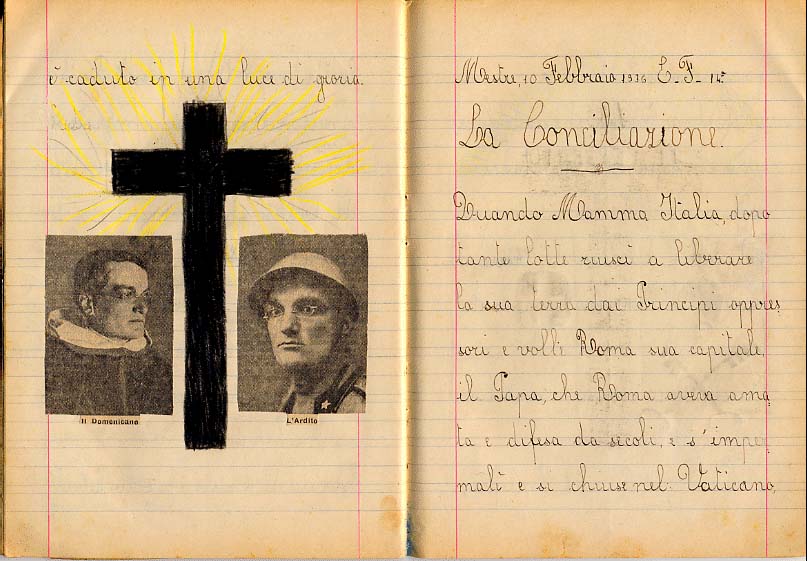 è caduto in una luce di groria.
Il Domenicano
L'Ardito
Mestre, 10 Febbraio 1936 E-F- 14º
La Conciliazione.
Quando Mamma Italia, dopo
tante lotte riuscì a liberare
la sua terra dai Principi oppres
sori e volli Roma sua capitale,
il Papa, che Roma aveva ama
ta e difesa da secoli, e s'imper
malì e si chiuse nel Vaticano,